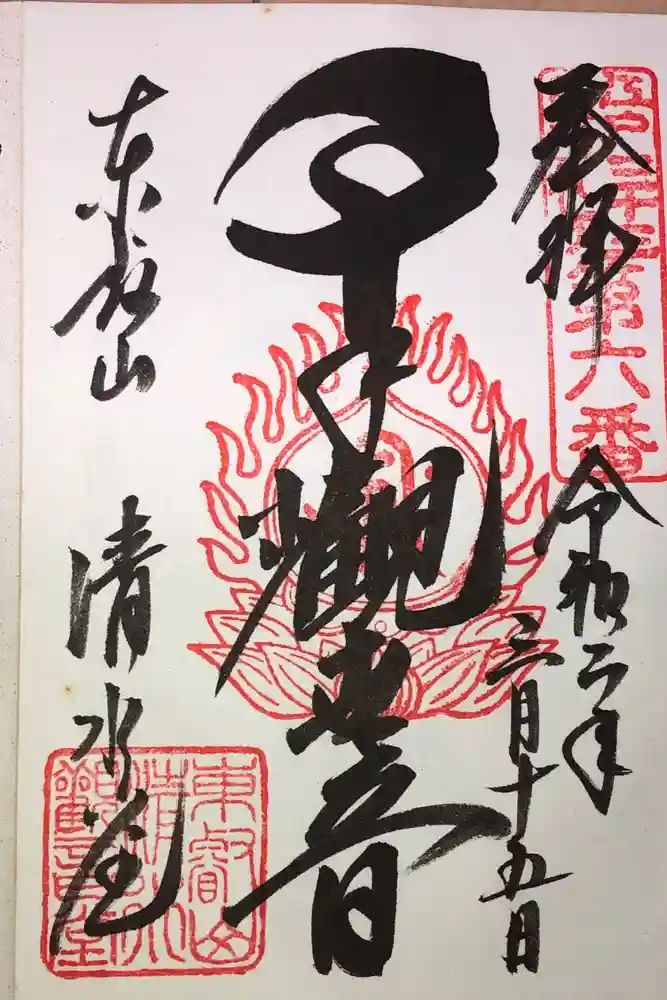 奉拝
第六番
令和二年
三月十五日
千手觀世音
東叡山
清水堂
東叡山
清水
觀音堂